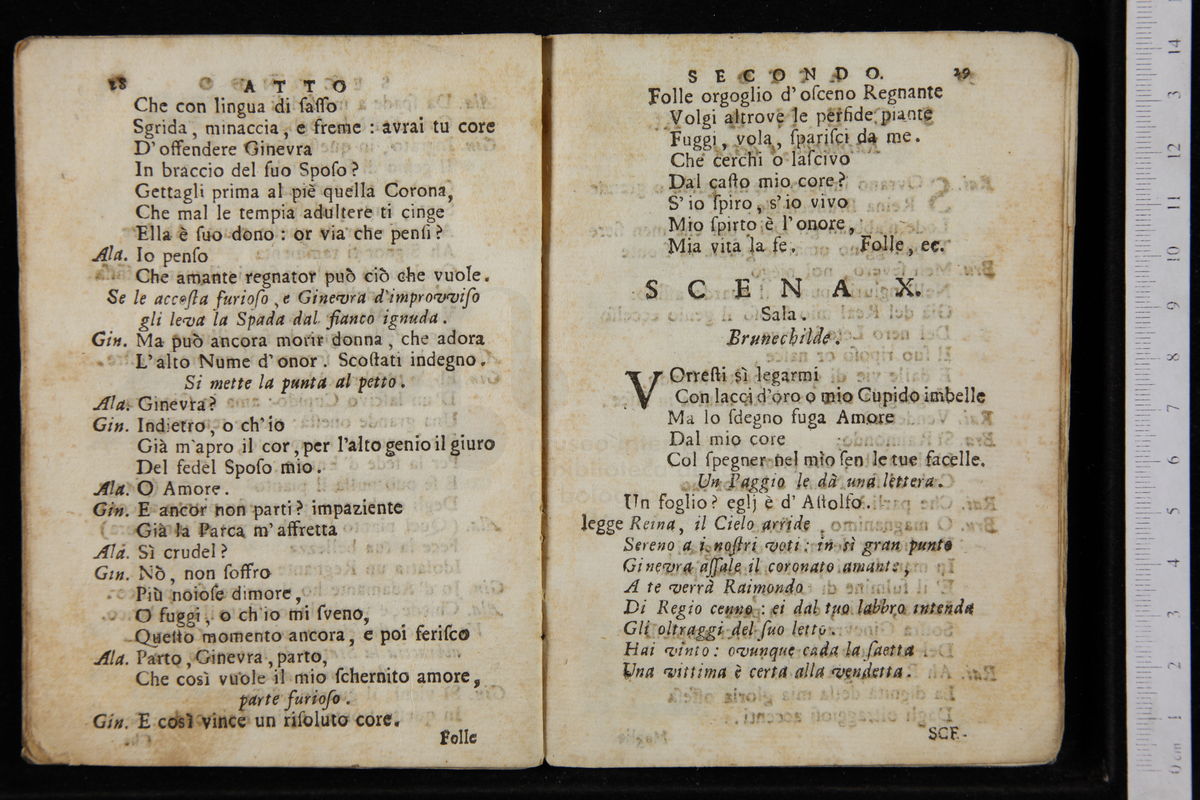 28 ATTO
Che con lingua di ſaſſo
Sgrida, minaccia, e freme : avrai tu core
D'offendere Ginevra
In braccio del ſuo Spoſo?
Gettagli prima al piè quella Corona,
Che mal le tempia adultere ti cinge
Ella è ſuo dono : or via che penſi?
Ala. Io penſo
Che amante regnator può ciò che vuole.
Se le accoſta furioſo, e Ginevra d'improvviſo
gli leva la Spada dal fianco ignuda.
Gin. Ma può ancora morir donna, che adora
L'alto Nume d'onor. Scoſtati indegno.
Si mette la punta al petto.
Ala. Ginevra?
Gin. Indietro, o ch'io
Già m'apro il cor, per l'alto genio il giuro
Del fedel Spoſo mio.
Ala. O Amore.
Gin. E ancor non parti? impaziente
Già la Parca m'affretta
Ala. Sì crudel?
Gin. Nò, non ſoffro
Più noioſe dimore,
O fuggi, o ch'io mi ſveno,
Queſto momento ancora, e poi feriſco
Ala. Parto, Ginevra, parto,
Che così vuole il mio ſchernito amore,
parte furioſo.
Gin. E così vince un riſoluto core.
Folle
SECONDO. 29
Folle orgoglio d'oſceno Regnante
Volgi altrove le perfide piante
Fuggi, vola, ſpariſci da me.
Che cerchi o laſcivo
Dal caſto mio core?
S'io ſpiro, s'io vivo
Mio ſpirto è l'onore,
Mia vita la fe. Folle, ec.
SCENA X.
Sala.
Brunechilde.
VOrreſti sì legarmi
Con lacci d'oro o mio Cupido imbelle
Ma lo ſdegno fuga Amore
Dal mio core
Col ſpegner nel mio ſen le tue facelle.
Un Paggio le dà una lettera.
Un foglio? eglj è d'Aſtolfo.
legge Reina, il Cielo arride
Sereno a i noſtri voti : in sì gran punto
Ginevra aſſale il coronato amante,
A te verrà Raimondo
Di Regio cenno : ei dal tuo labbro intenda
Gli oltraggi del ſuo letto.
Hai vinto : ovunque cada la ſaetta
Una vittima è certa alla vendetta.
SCE-
0 cm 1 2 3 4 5 6 7 8 9 10 11 12 3 14